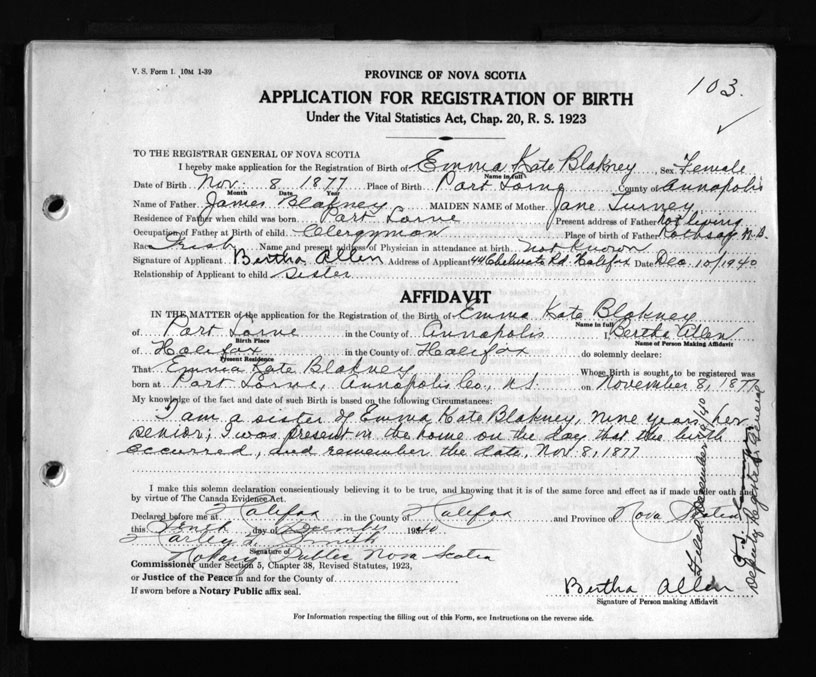 V. S. Form 1. 10M 1-39
PROVINCE OF NOVA SCOTIA
103.
APPLICATION FOR REGISTRATION OF BIRTH
Under the Vital Statistics Act, Chap. 20, R. S. 1923
TO THE REGISTRAR GENERAL OF NOVA SCOTIA
I hereby make application for the Registration of Birth of Emma Kate Blakney, Sex Female
Name in full
Date of Birth Nov. 8 1877 Place of Birth Port Lorne County of Annapolis
Month Date Year
Name of Father James Blakney MAIDEN NAME of Mother Jane Turney
Residence of Father when child was born Port Lorne Present address of Father not living
Occupation of Father at Birth of child Clergyman Place of birth of Father Rothsay N.B.
Race Irish Name and present address of Physician in attendance at birth not known
Signature of Applicant Bertha Allen Address of Applicant 44 Rd. Halifax Date Dec. 10/1940
Relationship of Applicant to child Sister
AFFIDAVIT
IN THE MATTER of the application for the Registration of the Birth of Emma Kate Blakney
Name in full
of Port Lorne in the County of Annapolis I, Bertha Allen
Birth Place Name of Person Making Affidavit
of Halifax in the County of Halifax do solemnly declare:
Present Residence
That Emma Kate Blakney Whose Birth is sought to be registered was
born at Port Lorne, Annapolis Co., N.S. on November 8, 1877
My knowledge of the fact and date of such Birth is based on the following Circumstances:
I am a sister of Emma Kate Blakney, nine years her
senior; I was present in the home on the day that the birth
occurred, and remember the date, Nov. 8, 1877
I make this solemn declaration conscientiously believing it to be true, and knowing that it is of the same force and effect as if made under oath and
by virtue of The Canada Evidence Act.
Declared before me at Halifax in the County of Halifax and Province of Nova Scotia
this Tenth day of December 1940
Smith
Signature of
Notary Public Nova Scotia
Commissioner under Section 5, Chapter 38, Revised Statutes, 1923,
or Justice of the Peace in and for the County of
If sworn before a Notary Public affix seal.
Bertha Allen
Signature of Person making Affidavit
For Information respecting the filling out of this Form, see Instructions on the reverse side.
Filed December 19/40
Deputy Registrar General